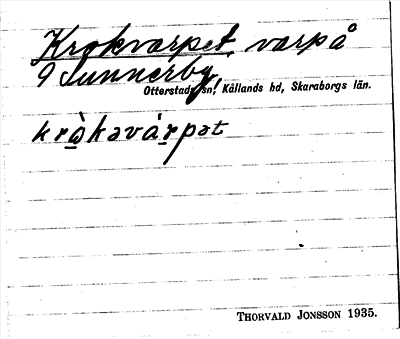 Krokvarpet, varp å
9 Sunnerby,
Otterstads sn, Kållands hd, Skaraborgs län.
krò̠kəvár̠pət
THORVALD JONSSON 1935.